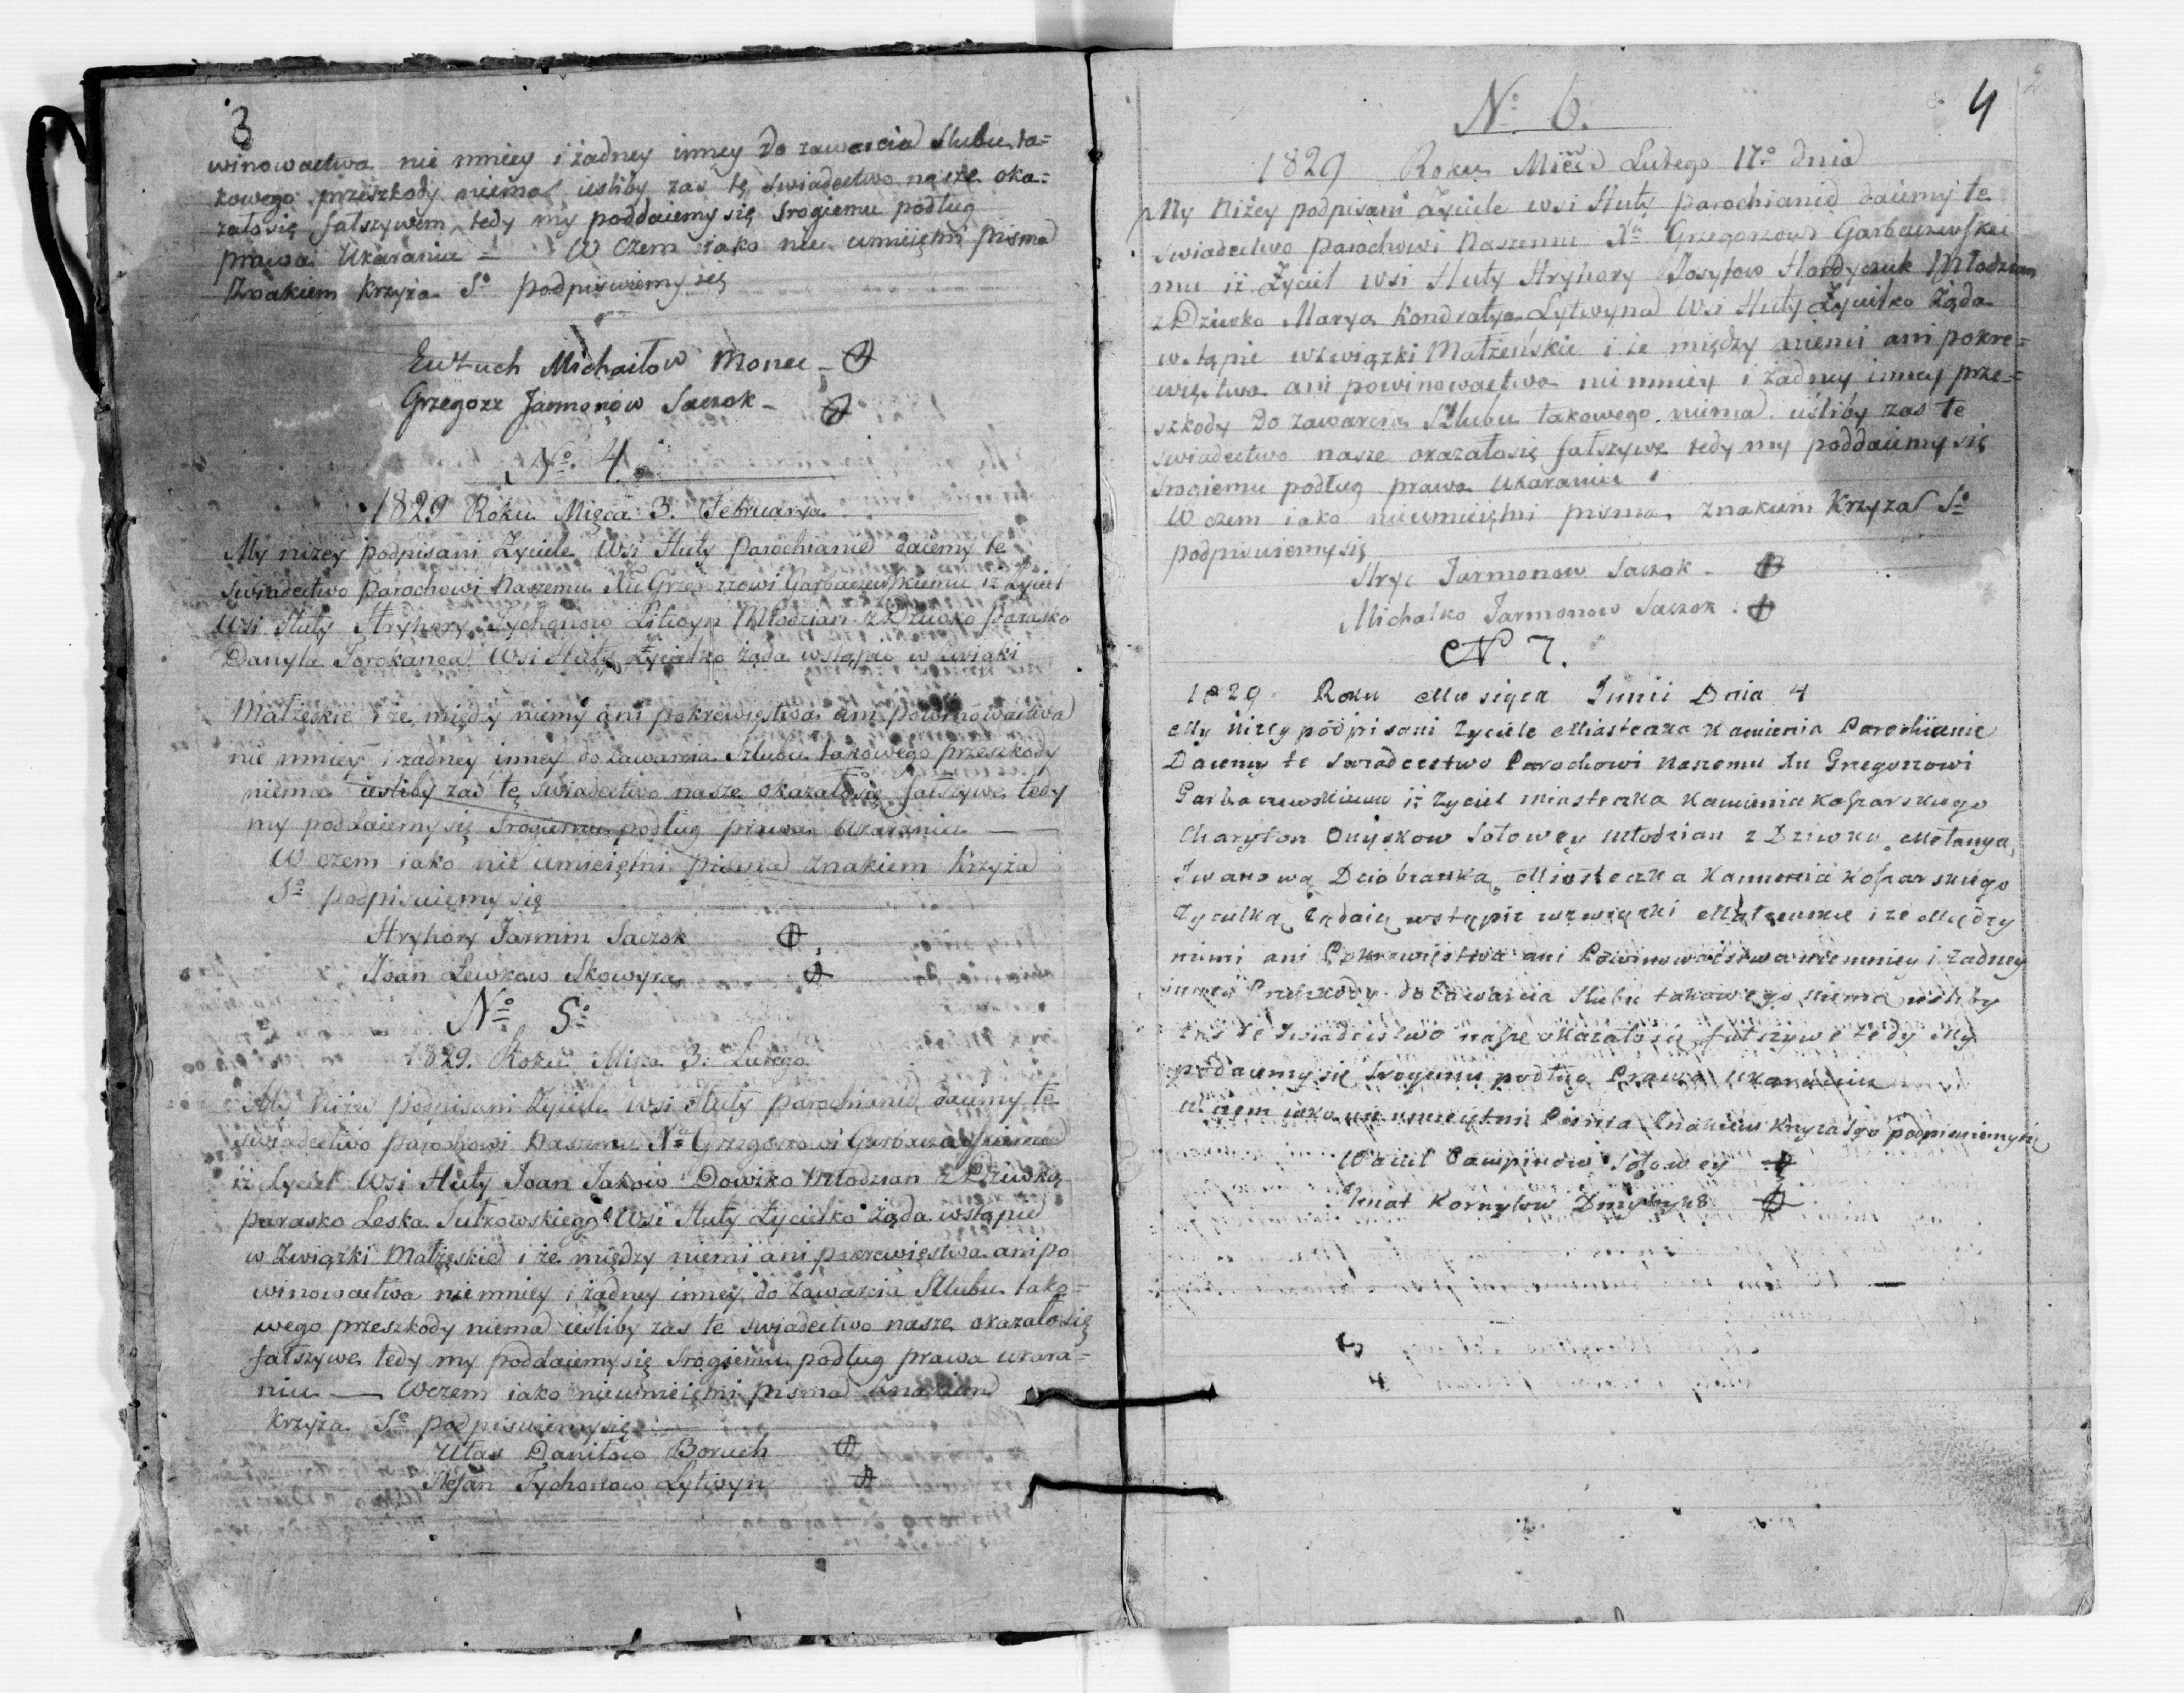 3
winowactwa nie mniey i żadney inney do zawarcia Slubu ta=
kowego przeszkody niema iesliby zas tę swiadectwo nasze oka=
załosię fałszywem, tedy my poddaiemy się srogiemu podług
prawa Ukaraniu — W czem iako nie umieiętni pisma
Znakiem Krzyża So podpisuiemy się
Michaiłow Monec
Grzegorz Jarmonow Saczok
No. 4.
1829 Roku Mięca 3. Februarya
My niżey podpisani Życiele Wsi Huty Parochianie daiemy te
swiadectwo Parochowi Naszemu Xu Grzegorzowi Garbaczewskiemu iż Życiel
Wsi Huty Hryhory Tychonow Litwyn Młodzian z Dziwko Parasko
Danyła Wsi Huty Życielko żąda wstąpić w związki
Małżeskie i że między niemy ani pokrewięstwa ani powinowactwa
nie mniey i żadney inney do zawarcia Szlubu takowego przeszkody
niema iesliby zas tę swiadectwo nasze okazałosię fałszywe, tedy
my poddaiemy się Srogiemu podług prawa Ukaraniu —
W czem iako nie umieiętni pisma znakiem Krzyża
So podpisuięmy się
Hryhory Jarmin Saczok
Joan Lewkow Skowyra
No 5o
1829. Roku Mięca 3. Lutego
My Niżey podpisani Życiele wsi Huty parochianie daiemy te
swiadectwo parochowi Naszemu Xu Grzegorzowi Garbaczewskiemu
iż Życiel Wsi Huty Joan Jakow Dowżko Młodzian z Dziwką
parasko Leska Sutkowskiego Wsi Huty Życielko żąda wstąpić
w Związki Małżęskie i że między niemi ani pokrewięstwa ani po
winowactwa niemniey i żadney inney do zawarcia Slubu tako=
wego przeszkody niema iesliby zas te swiadectwo nasze okazałosię
fałszywe tedy my poddaiemy się Srogiemu podług prawa ukara=
niu — Wczem iako nieumieiętni pisma znakiem
Krzyża So podpisuiemysię
Ułas Daniłow Boruch
Stefan Tychonow Lytwyn
4
2
No. 6.
1829 Roku Mięca Lutego 17o dnia
My Niżey podpisani Życiele wsi Huty parochianie daiemy te
swiadectwo parochowi Naszemu Xu Grzegorzowi Garbaczewskie
mu iż Życiel wsi Huty Hryhory Josyfow Młodzian
z Dziwko Marya Kondratya Lytwyna Wsi Huty Życielko Żąda
wstąpić wzwiązki Małżeńskie i że między niemi ani pokre=
więstwa ani powinowactwa niemniey i żadney inney prze=
szkody Do zawarcia Szlubu takowego niema iesliby zas te
swiadectwo nasze okazałosię fałszywe tedy my poddaiemy się
Srogiemu podług prawa Ukaraniu
W czem iako nieumieiętni pisma znakiem Krzyża So
podpisuiemy się
Hryc Jarmonow Saczok
Michalko Jarmonow Saczok
N 7.
1829 Roku Miesięca Junii Dnia 4
My niżey podpisani Życiele Miasteczka Kamienia Parochianie
Daiemy te swiadectwo Parochowi Naszemu Xu Grzegorzowi
Garbaczewskiemu iż Życiel miasteczka Kamienia Koszarskiego
Charyton Onyskow Sołowey Młodzian z Dziwką Mełanya
Iwanową Miasteczka Kamienia Koszarskiego
Życielką Żądaią wstąpić wzwiązki Małżenskie i że Między
nimi ani Pokrewięstwa ani Powinowactwa niemniey i żadney
inney Przeszkody do Zawarcia Slubu takowego niema iesliby
zas te swiadectwo nasze okazałosię fałszywe tedy My
poddaiemy się Srogiemu podług Prawa Ukaraniu
W czem iako nie umieiętni Pisma Znakiem Krzyża Sgo podpisuiemysię
Wasiel Sołowey
Ihnat Korny­łow